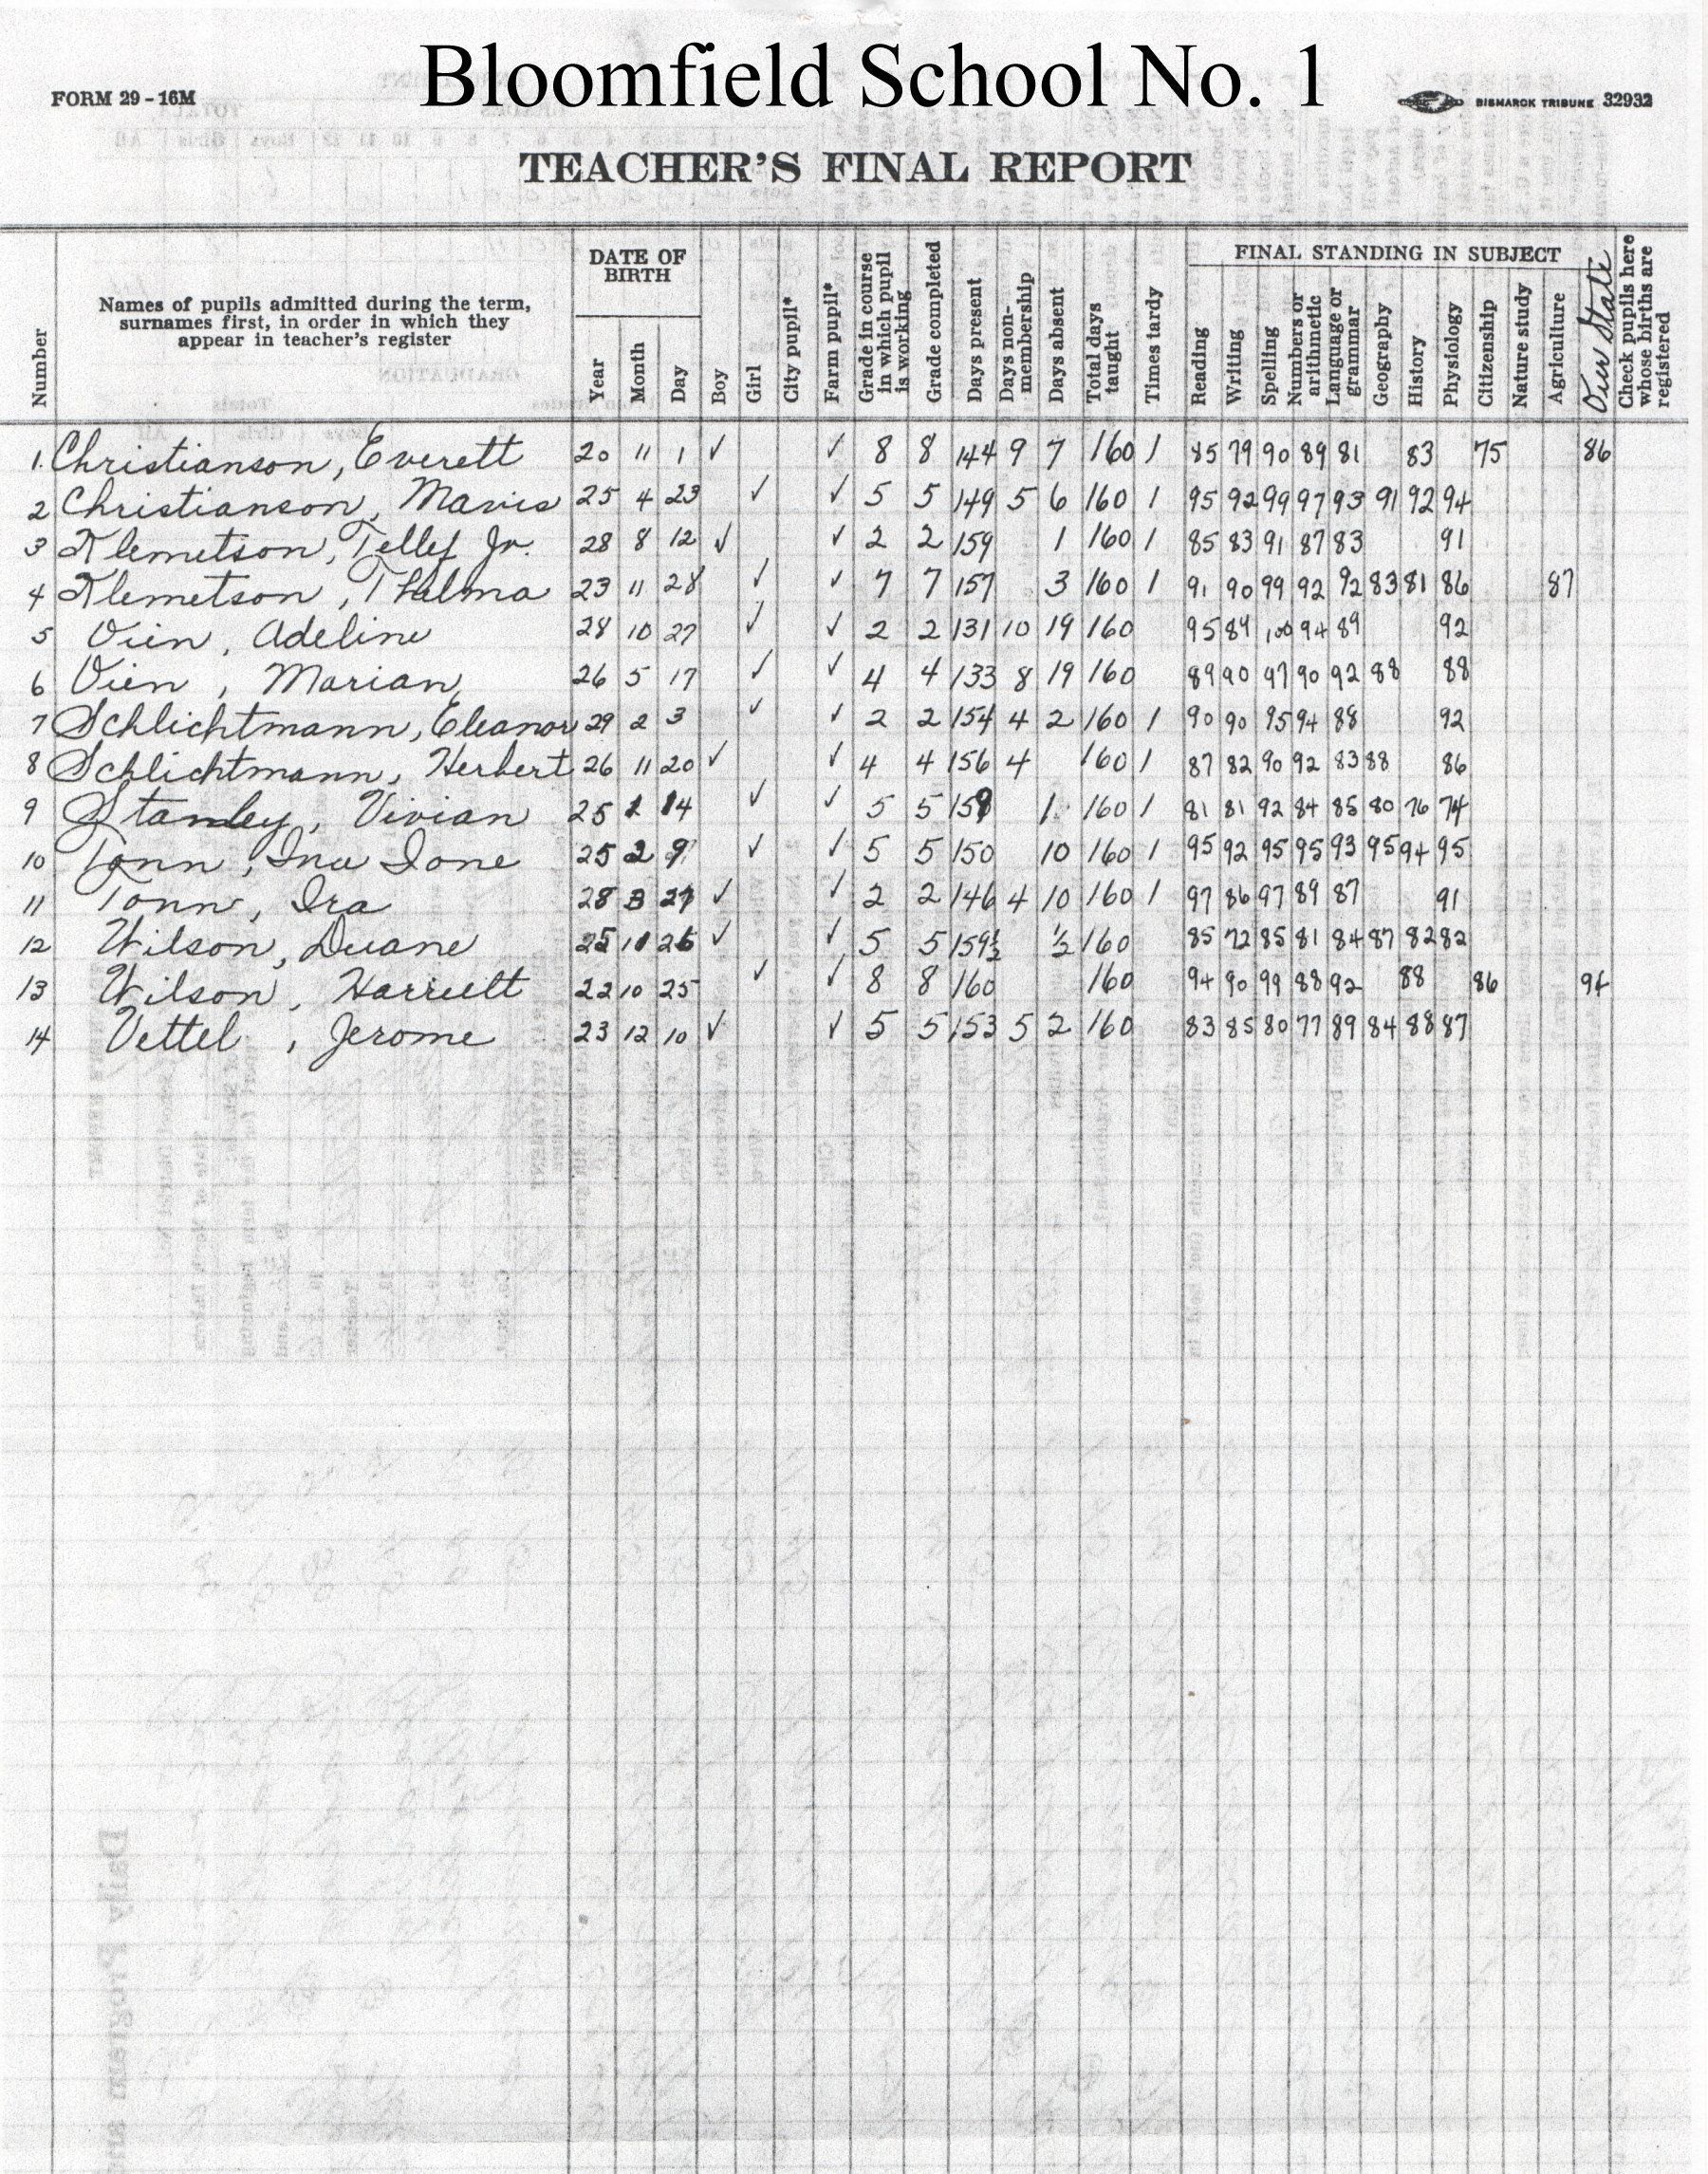 Bloomfield School No. 1
FORM 29 - 16M
BISMARCK TRIBUNE 32932
TEACHER'S FINAL REPORT
Number
Names of pupils admitted during the term, surnames first, in order in which they appear in teacher's register
DATE OF BIRTH
Year Month Day
Boy Girl City pupil* Farm pupil*
Grade in course in which pupil is working
Grade completed
Days present
Days non-membership
Days absent
Total days taught
Times tardy
FINAL STANDING IN SUBJECT
Reading Writing Spelling
Numbers or arithmetic
Language or grammar
Geography History Physiology Citizenship Nature study Agriculture
Our State
Check pupils here whose births are registered
1. Christianson, Everett 20 11 1 ✓ ✓ 8 8 144 9 7 160 1 85 79 90 89 81 83 75 86
2 Christianson, Mavis 25 4 23 ✓ ✓ 5 5 149 5 6 160 1 95 92 99 97 93 91 92 94
3 Klemetson, Tellef Jr. 28 8 12 ✓ ✓ 2 2 159 1 160 1 85 83 91 87 83 91
4 Klemetson, Thelma 23 11 28 ✓ ✓ 7 7 157 3 160 1 91 90 99 92 92 83 81 86 87
5 Vien, Adeline 28 10 27 ✓ ✓ 2 2 131 10 19 160 95 89 100 94 89 92
6 Vien, Marian 26 5 17 ✓ ✓ 4 4 133 8 19 160 89 90 97 90 92 88 88
7 Schlichtmann, Eleanor 29 2 3 ✓ ✓ 2 2 154 4 2 160 1 90 90 95 94 88 92
8 Schlichtmann, Herbert 26 11 20 ✓ ✓ 4 4 156 4 160 1 87 82 90 92 83 88 86
9 Stanley, Vivian 25 1 14 ✓ ✓ 5 5 159 1 160 1 81 81 92 84 85 80 76 74
10 Tonn, Ina Ione 25 2 9 ✓ ✓ 5 5 150 10 160 1 95 92 95 95 93 95 94 95
11 Tonn, Ira 28 3 27 ✓ ✓ 2 2 146 4 10 160 1 97 86 97 89 87 91
12 Wilson, Duane 25 10 26 ✓ ✓ 5 5 159½ ½ 160 85 72 85 81 84 87 82 82
13 Wilson, Harriett 22 10 25 ✓ ✓ 8 8 160 160 94 90 99 88 92 88 86 94
14 Vettel, Jerome 23 12 10 ✓ ✓ 5 5 153 5 2 160 83 85 80 77 89 84 88 87